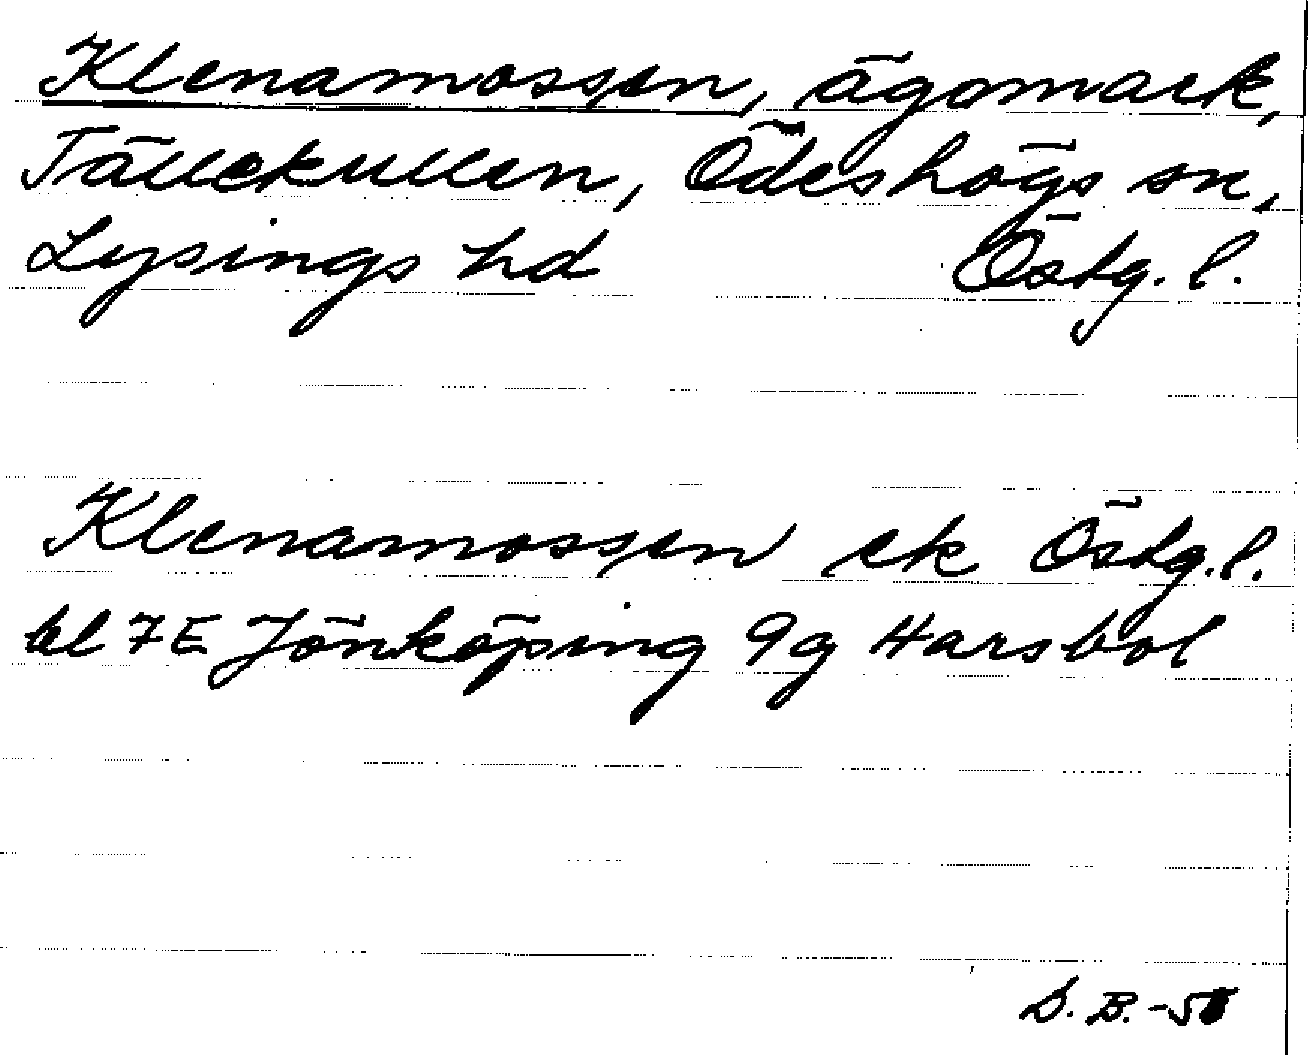 Klenamossen, ägomark,
Tällekullen, Ödeshögs sn,
Lysings hd Östg. l.
Klenamossen ek Östg. l.
bl 7E Jönköping 9g Harsbol
S. B.